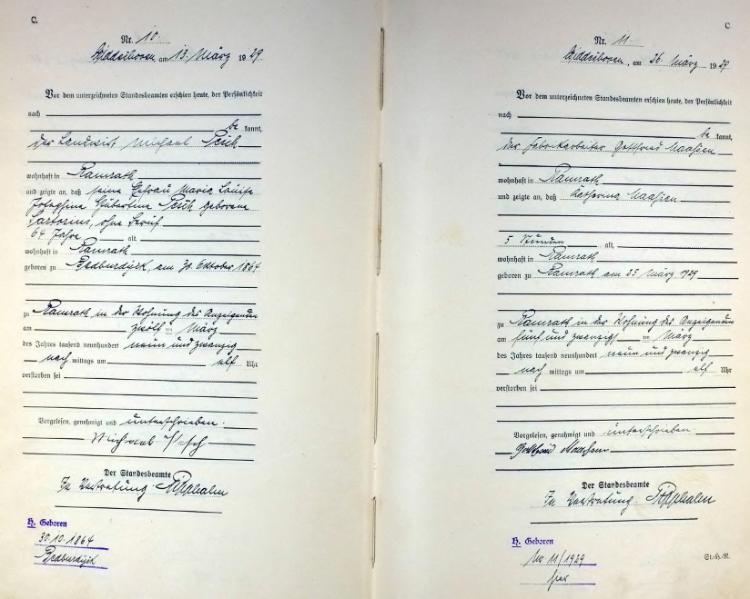 C.
Nr. 10.
Büttgen am 13. März 1929
Vor dem unterzeichneten Standesbeamten erschien heute, der Persönlichkeit
nach
be kannt,
der Landwirt Michael Pesch
wohnhaft in Ramrath
und zeigte an, daß seine Ehefrau Maria Louise
Josephine Hubertine Pesch geborene
Sartorius, ohne Beruf
64 Jahre alt,
wohnhaft in Ramrath
geboren zu Bedburdyck, am 30. Oktober 1864
zu Ramrath in der Wohnung des Anzeigenden
am zwölften März
des Jahres tausend neunhundert neun und zwanzig
nach mittags um elf Uhr
verstorben sei
Vorgelesen, genehmigt und unterschrieben.
Michael Pesch
Der Standesbeamte
In Vertretung
H. Geboren
30.10.1864
Bedburdyck
C
Nr. 11
am 26. März 1929
Vor dem unterzeichneten Standesbeamten erschien heute, der Persönlichkeit
nach
be kannt,
der Fabrikarbeiter Gottfried Maassen
wohnhaft in Ramrath
und zeigte an, daß Katharina Maassen
5 Stunden alt,
wohnhaft in Ramrath
geboren zu Ramrath am 25 März 1929
zu Ramrath in der Wohnung des Anzeigenden
am fünf und zwanzigsten März
des Jahres tausend neunhundert neun und zwanzig
nach mittags um elf Uhr
verstorben sei
Vorgelesen, genehmigt und unterschrieben
Gottfried Maassen
Der Standesbeamte
In Vertretung
H. Geboren
No 11/1929
hier
St.-H.-R.